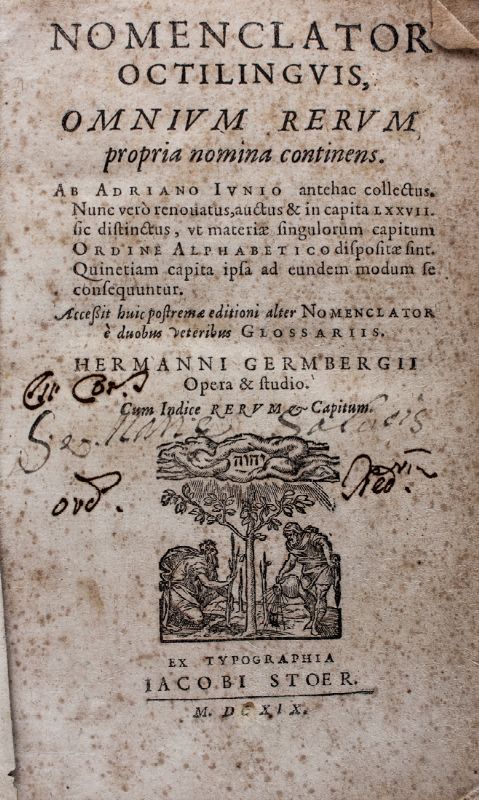 NOMENCLATOR
OCTILINGVIS,
OMNIVM RERVM
propria nomina continens.
AB ADRIANO IVNIO antehac collectus.
Nunc verò renouatus, auctus & in capita LXXVII.
sic distinctus, vt materiæ singulorum capitum
ORDINE ALPHABETICO dispositæ sint.
Quinetiam capita ipsa ad eundem modum se
consequuntur.
Acceßit huic postremæ editioni alter NOMENCLATOR
è duobus veteribus GLOSSARIIS.
HERMANNI GERMBERGII
Opera & studio.
Cum Indice RERVM & Capitum.
יהוה
EX TYPOGRAPHIA
IACOBI STOER.
M. DC XIX.